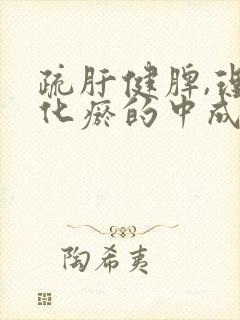 疏肝健脾,理
化瘀的中成
陶希夷